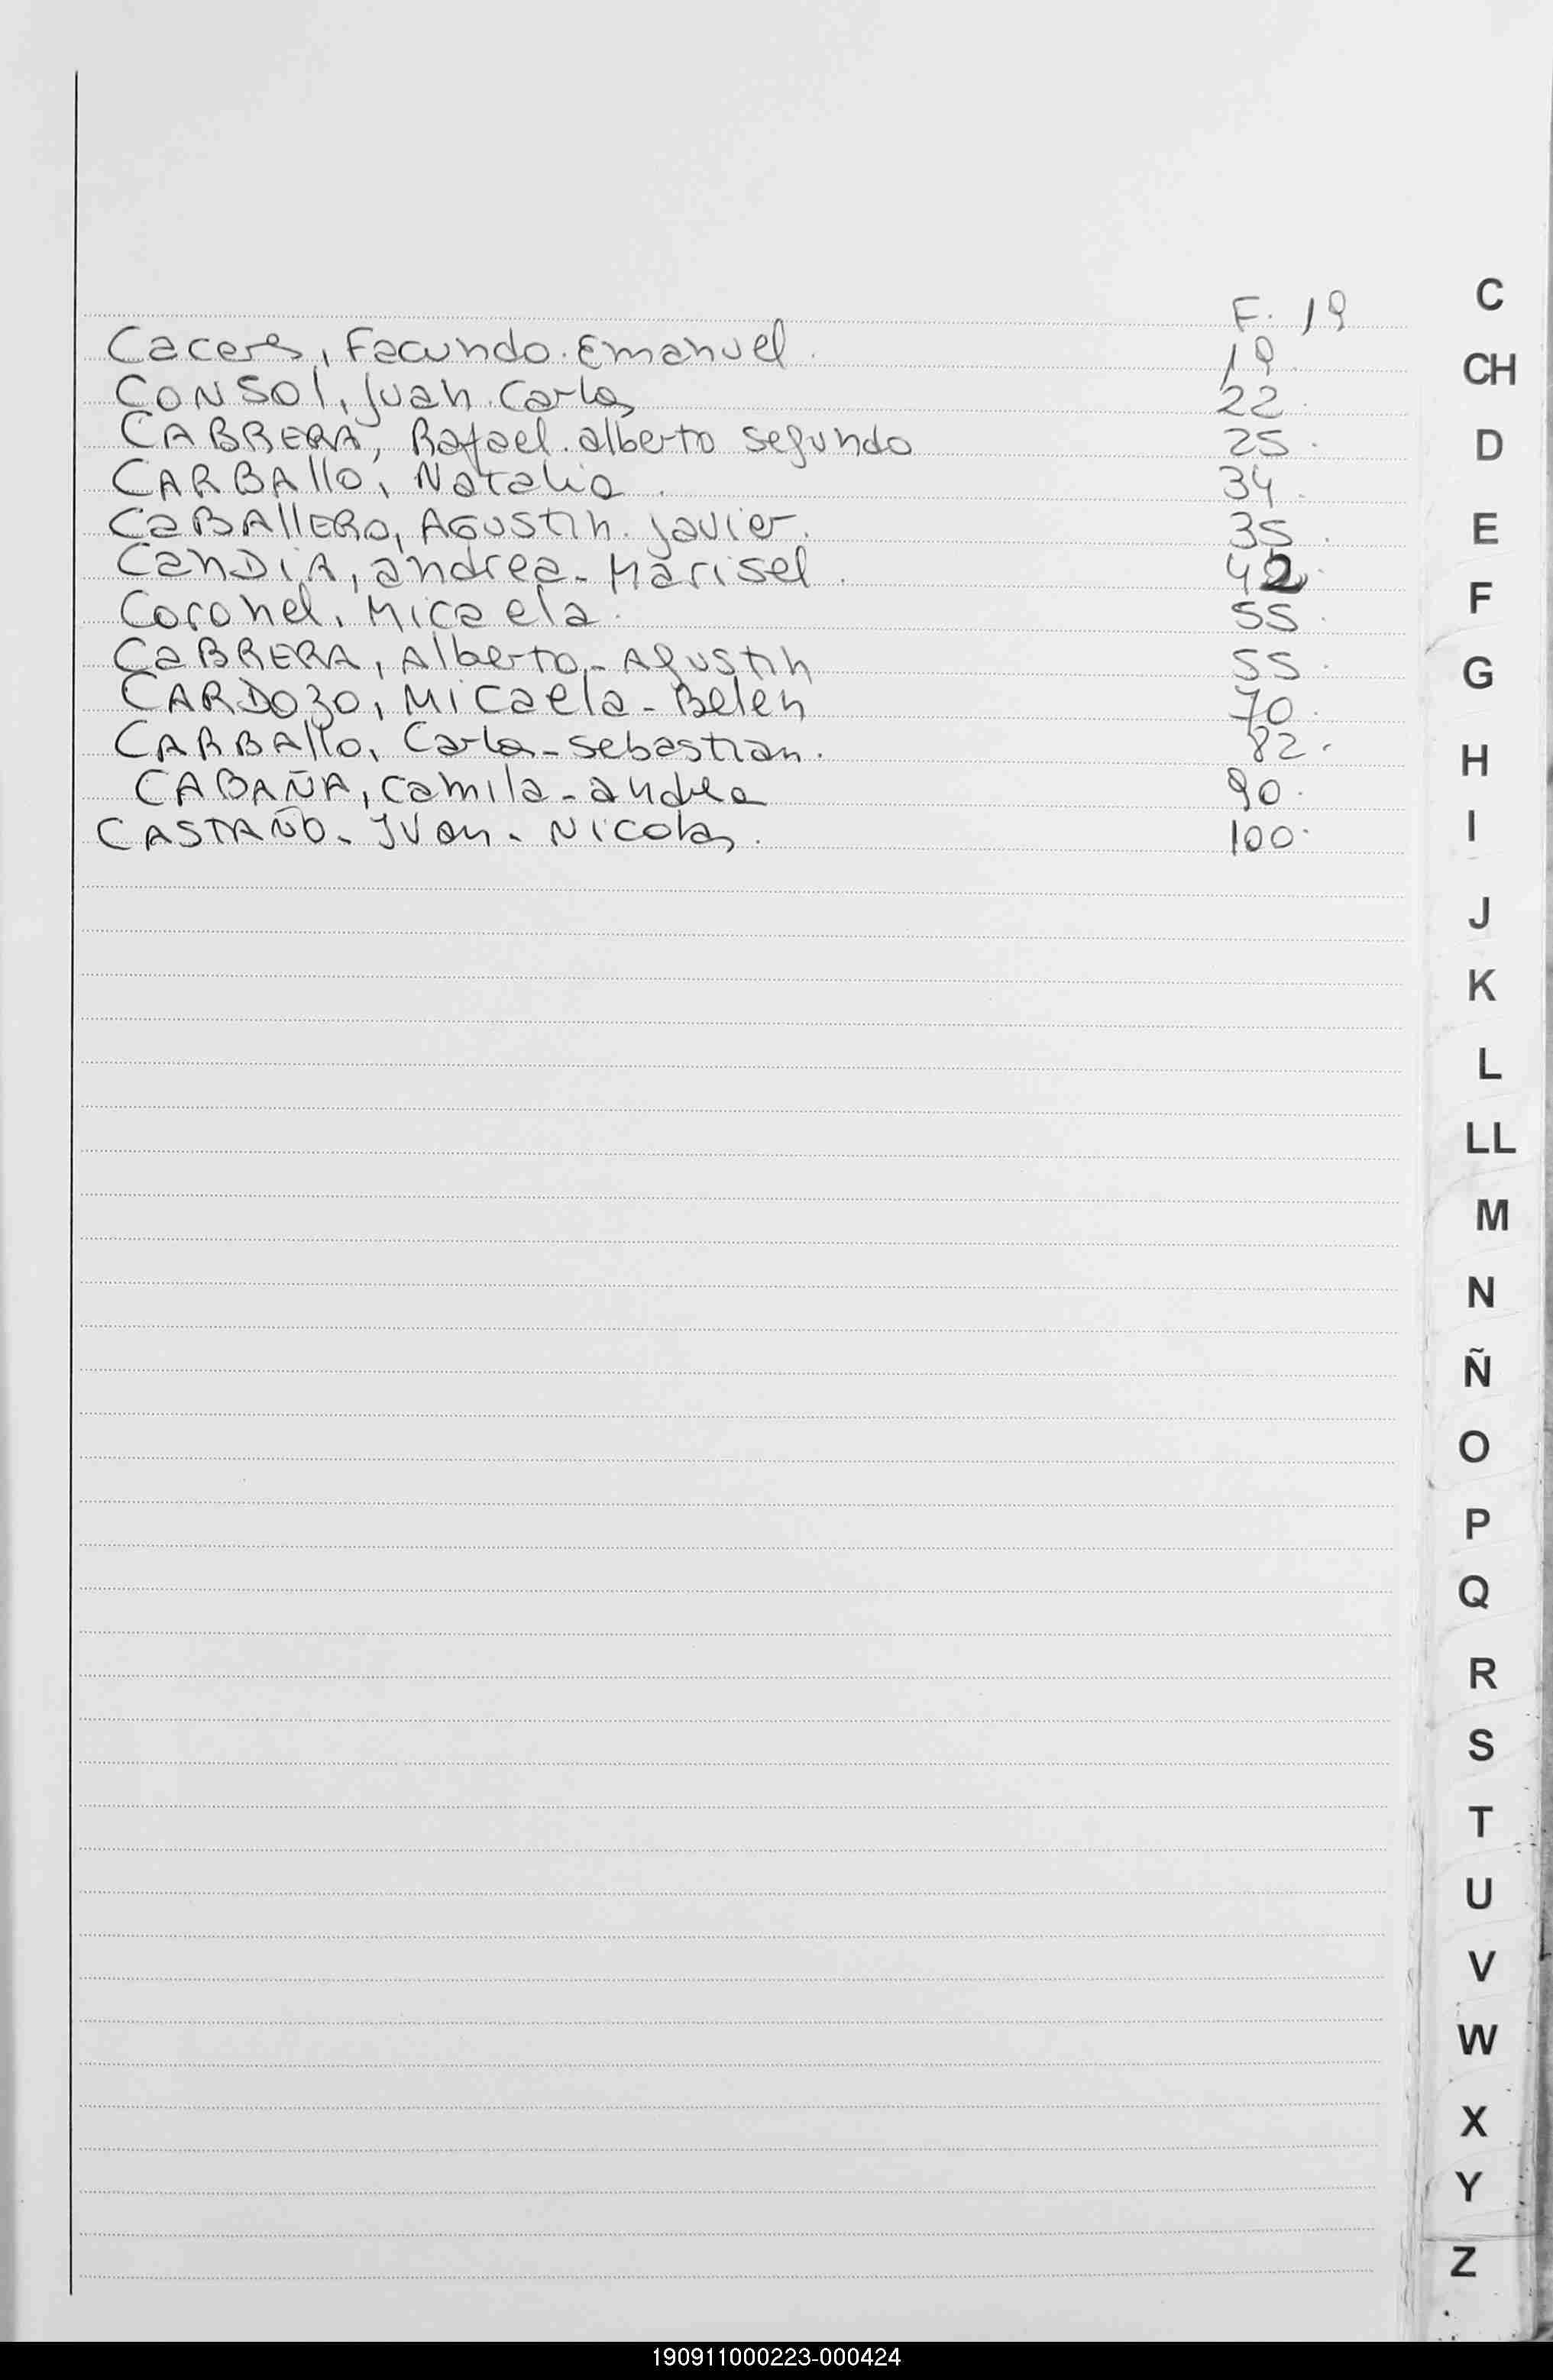 F. 19
Caceres, Facundo. Emanuel. 19
CONSOl, Juan. Carlos 22.
CABRERA, Rafael. alberto segundo 25.
CARBAllO, Natalia. 34.
CaBAllERO, AGUSTIn. Javier. 35.
CanDiA, andrea - Marisel. 42.
Coronel, Micaela. 55.
CaBRERA, Alberto - Agustin 55.
CARDOZO, Micaela - Belen 70.
CARBAllO, Carlos - Sebastian. 82.
CABAÑA, Camila - andrea 90.
CASTAÑO - IVan - Nicolas. 100.
C
CH
D
E
F
G
H
I
J
K
L
LL
M
N
Ñ
O
P
Q
R
S
T
U
V
W
X
Y
Z
190911000223-000424